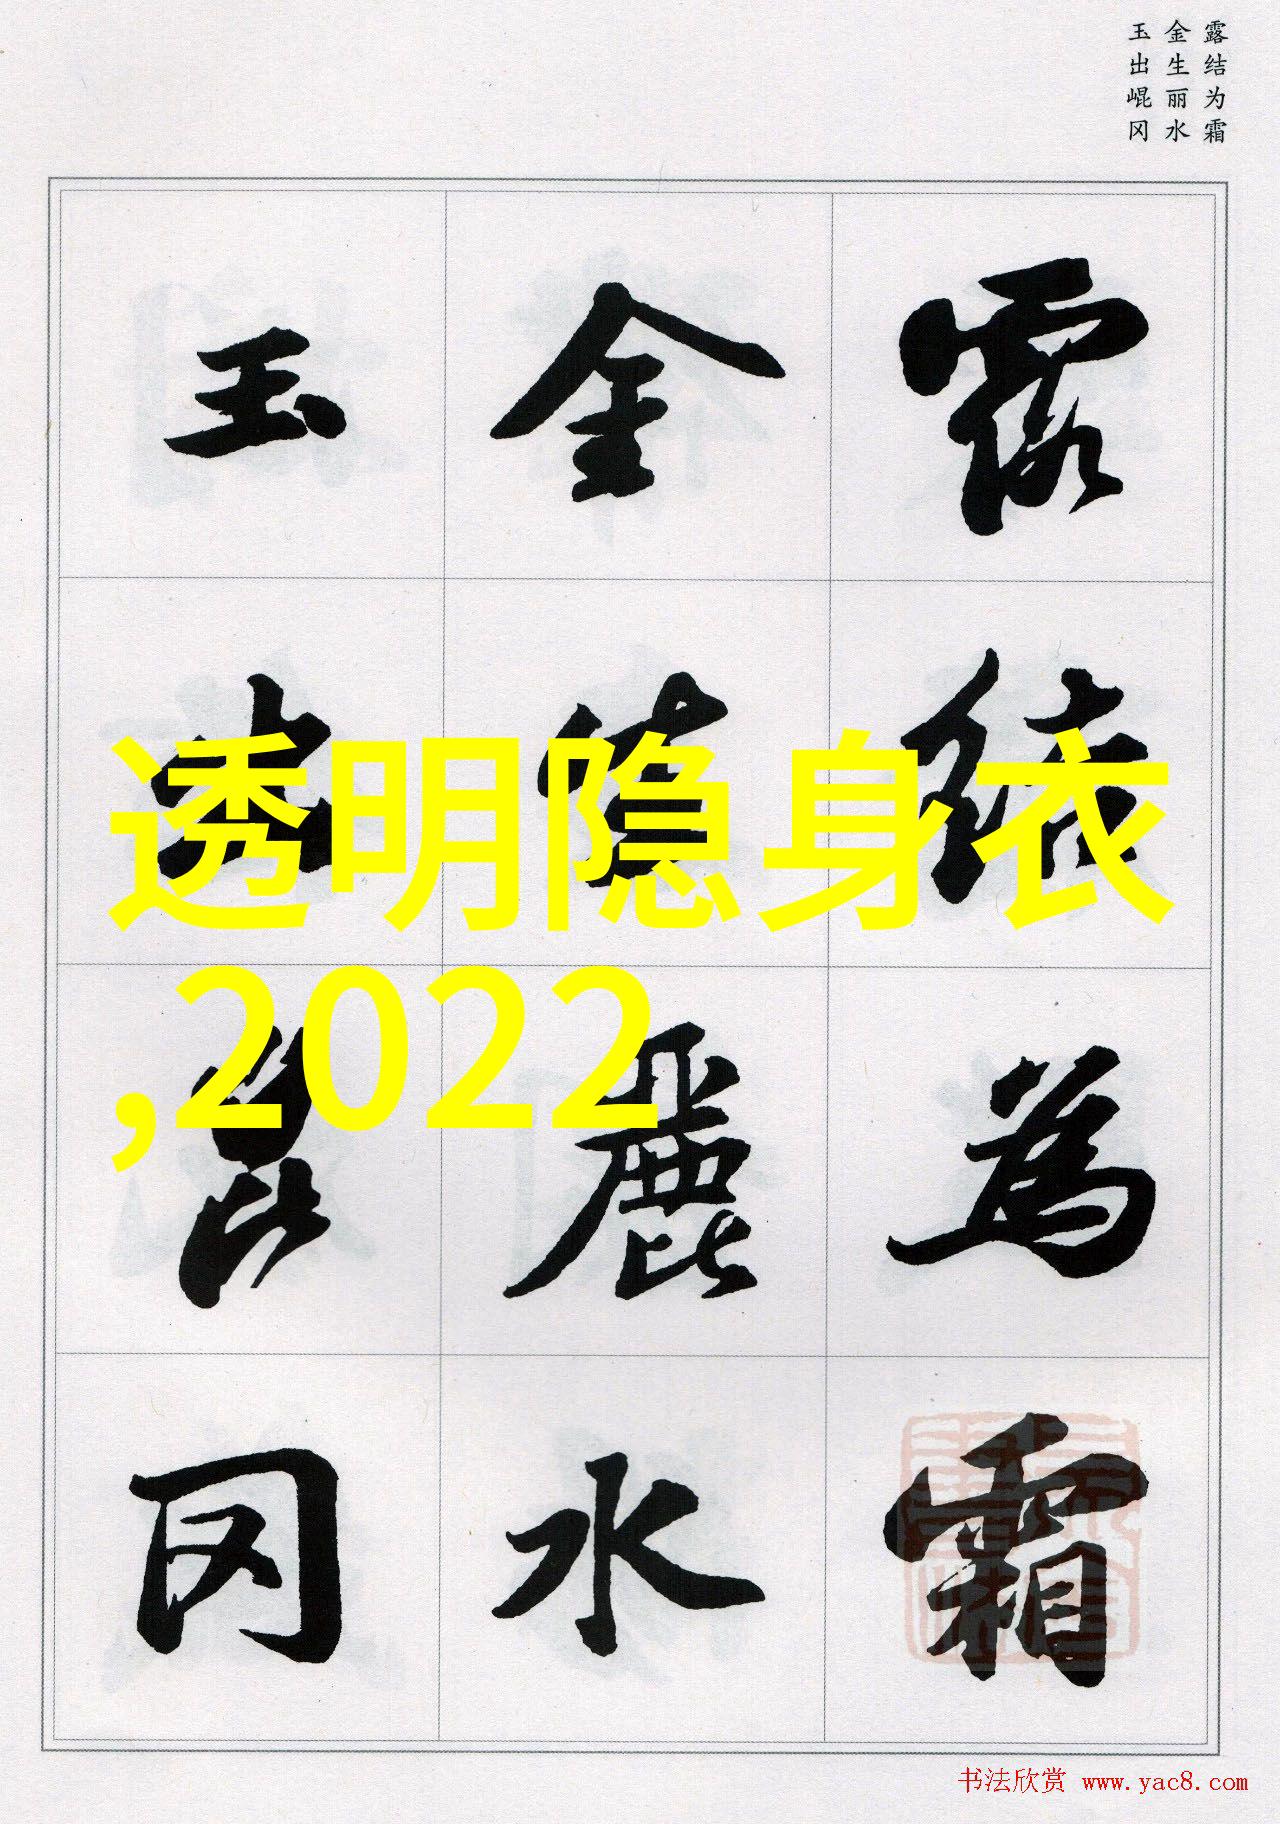 露结为霜
金生丽水
玉出崐冈
露結為霜
金生麗水
玉出昆冈
透明隐身衣
,2022
书法欣赏 www.yac8.com